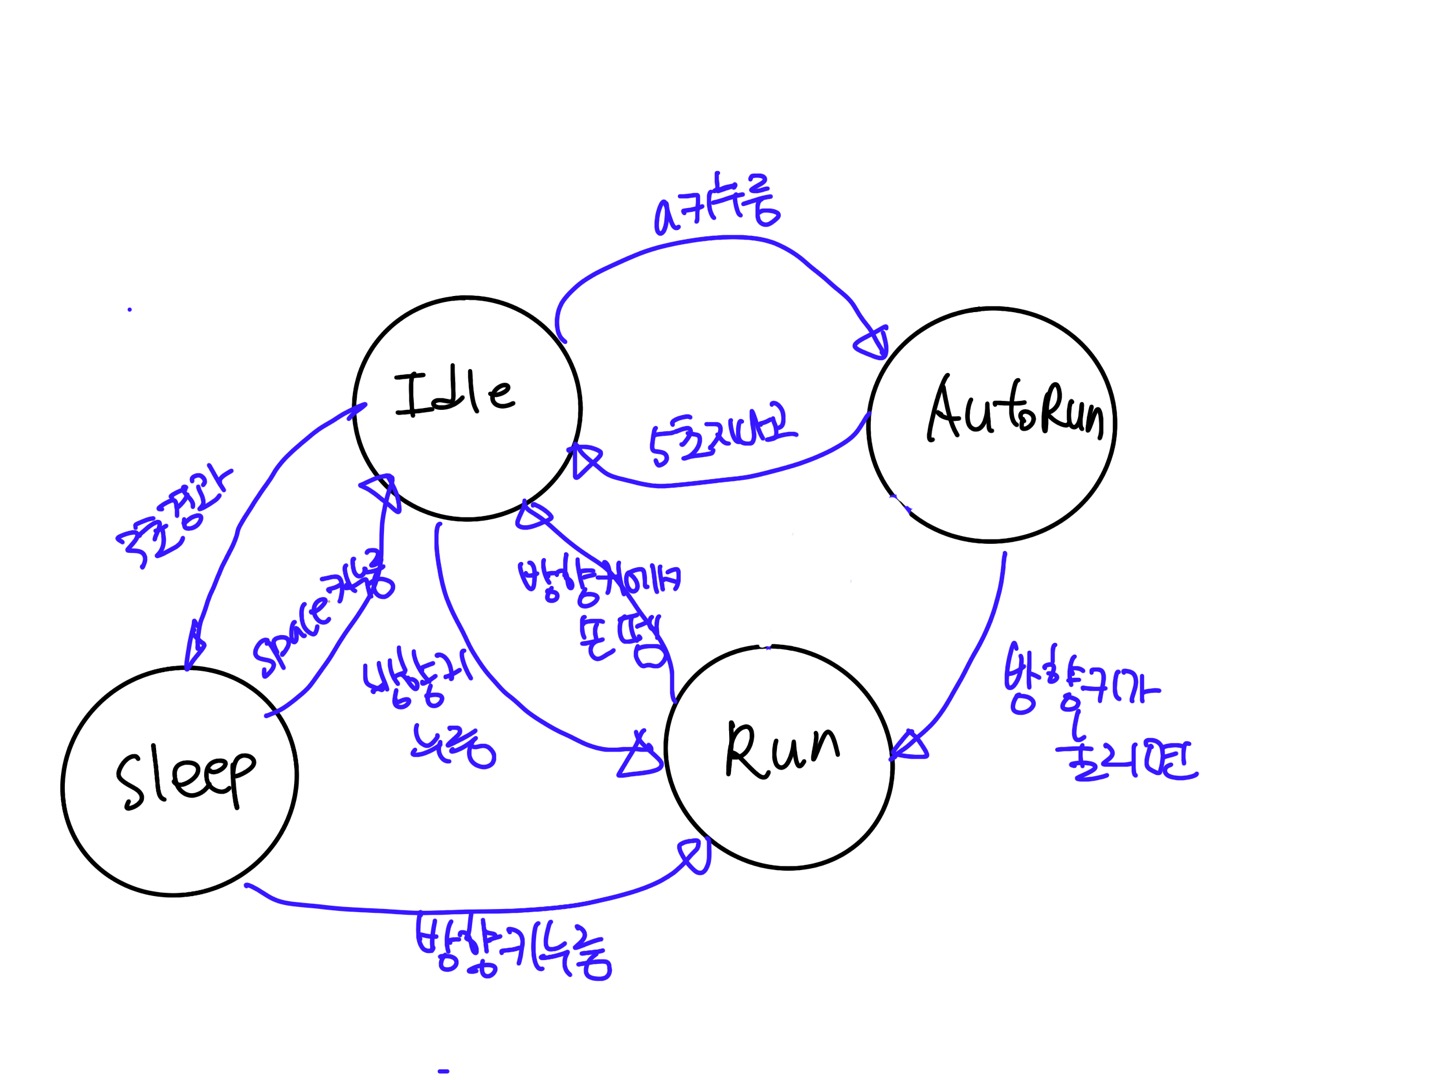 a키누름
Idle
AutoRun
5초지나고
3초경과
space키누름
방향키에서
손 뗌
방향키
누름
방향키가
눌리면
Run
Sleep
방향키누름